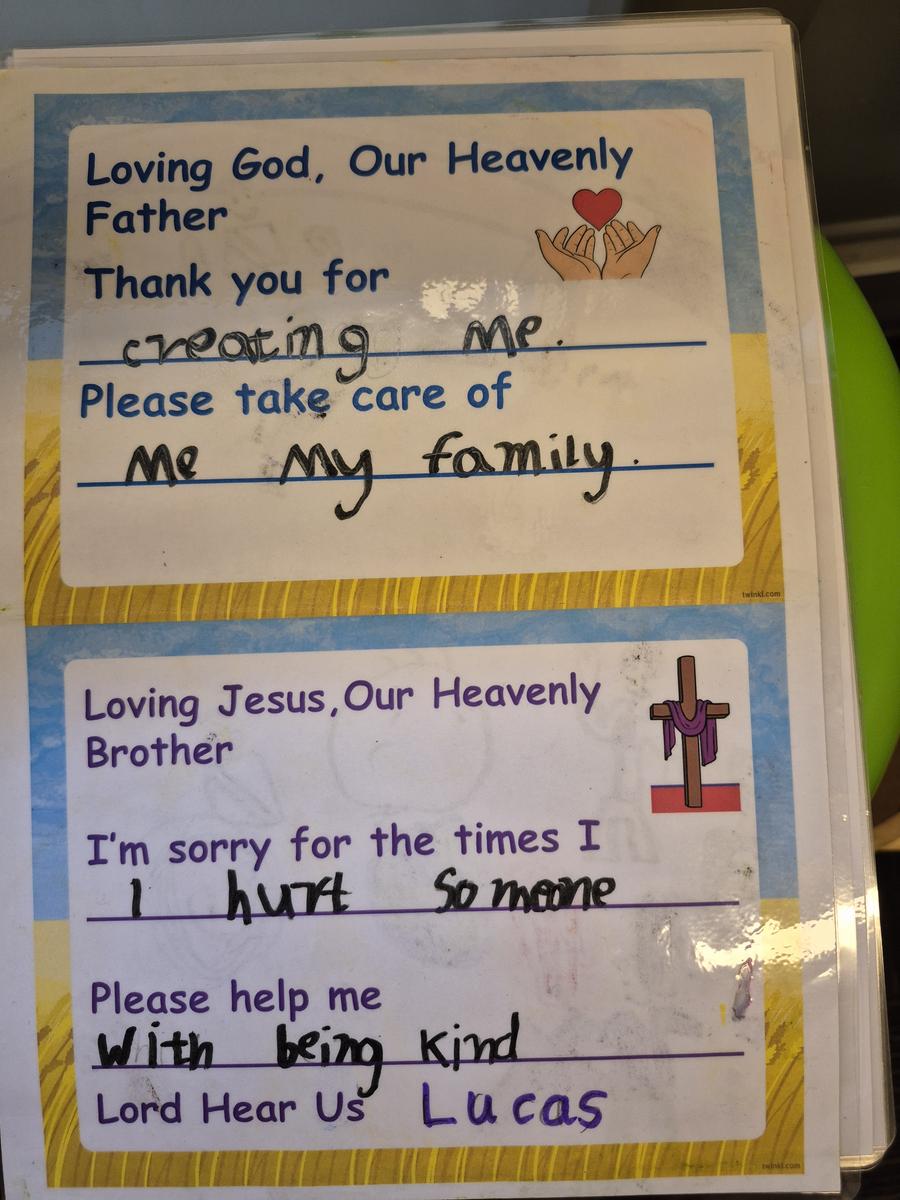 Loving God, Our Heavenly
Father
Thank you for
creating me.
Please take care of
me my family.
twinkl.com
Loving Jesus,Our Heavenly
Brother
I'm sorry for the times I
I hurt someone
Please help me
with being kind
Lord Hear Us Lucas
twinkl.com